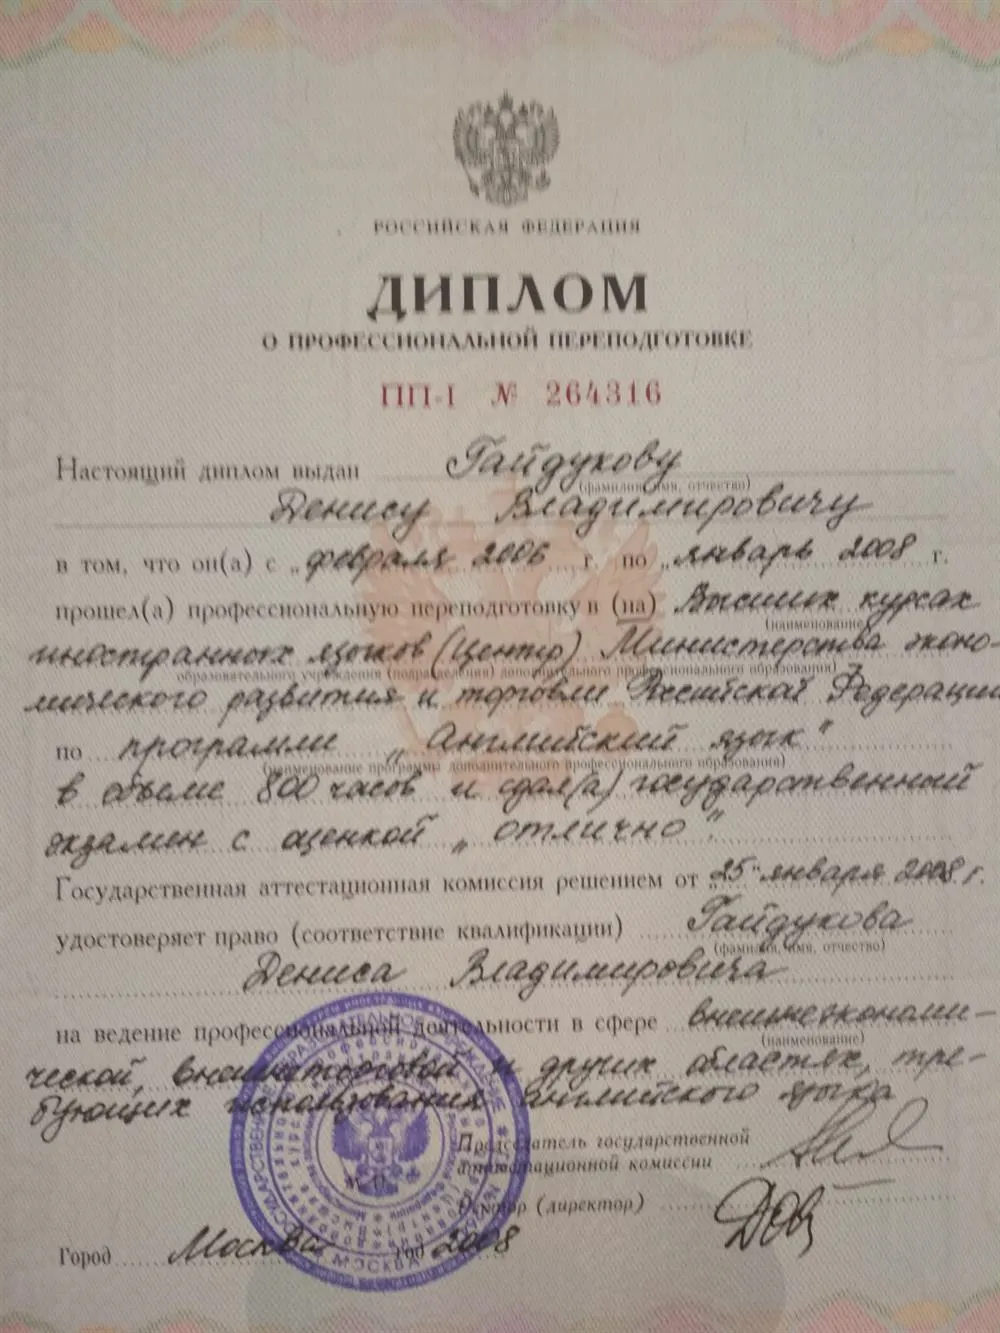 РОССИЙСКАЯ ФЕДЕРАЦИЯ
ДИПЛОМ
О ПРОФЕССИОНАЛЬНОЙ ПЕРЕПОДГОТОВКЕ
ПП-I № 264316
Настоящий диплом выдан Гайдукову
(фамилия, имя, отчество)
Денису Владимировичу
в том, что он(а) с „февраля 2006 г. по „январь 2008 г.
прошел(а) профессиональную переподготовку в (на) Высших курсах
(наименование
иностранных языков (Центр) Министерства эконо-
образовательного учреждения (подразделения) дополнительного профессионального образования)
мического развития и торговли Российской Федерации
по программе „Английский язык"
(наименование программы дополнительного профессионального образования)
в объеме 800 часов и сдал(а) государственный
экзамен с оценкой „отлично".
Государственная аттестационная комиссия решением от „25" января 2008 г.
удостоверяет право (соответствие квалификации) Гайдукова
(фамилия, имя, отчество)
Дениса Владимировича
на ведение профессиональной деятельности в сфере внешнеэкономи-
(наименование)
ческой, внешнеторговой и других областях, тре-
бующих использования английского языка
Председатель государственной
аттестационной комиссии
М.П.
Ректор (директор)
Город Москва год 2008
МОСКВА